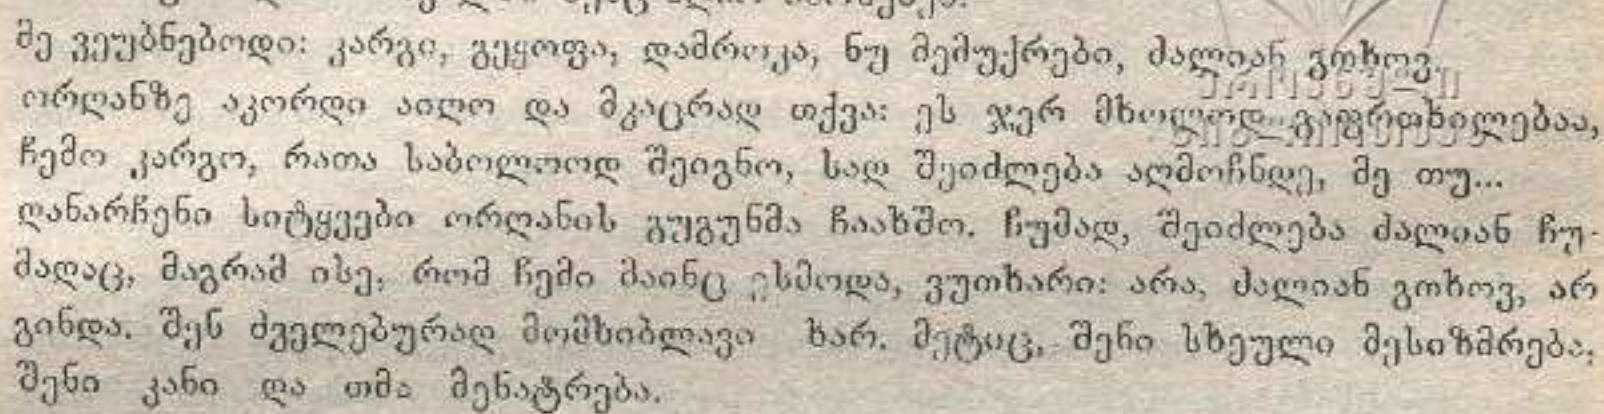 მე ვეუბნებოდი: კარგი, გეყოფა, დამრთკა, ნუ მემუქრები, ძალიან გთხოვ.
ორღანზე აკორდი აიღო და მკაცრად თქვა: ეს ჯერ მხოლოდ გაფრთხილებაა,
ჩემო კარგო, რათა საბოლოოდ შეიგნო, სად შეიძლება აღმოჩნდე, მე თუ...
დანარჩენი სიტყვები ორღანის გუგუნმა ჩაახშო. ჩუმად, შეიძლება ძალიან ჩუ-
მადაც, მაგრამ ისე, რომ ჩემი მაინც ესმოდა, ვუთხარი: არა, ძალიან გთხოვ, არ
გინდა. შენ ძველებურად მომხიბლავი ხარ. მეტიც, შენი სხეული მესიზმრება,
შენი კანი და თმა მენატრება.